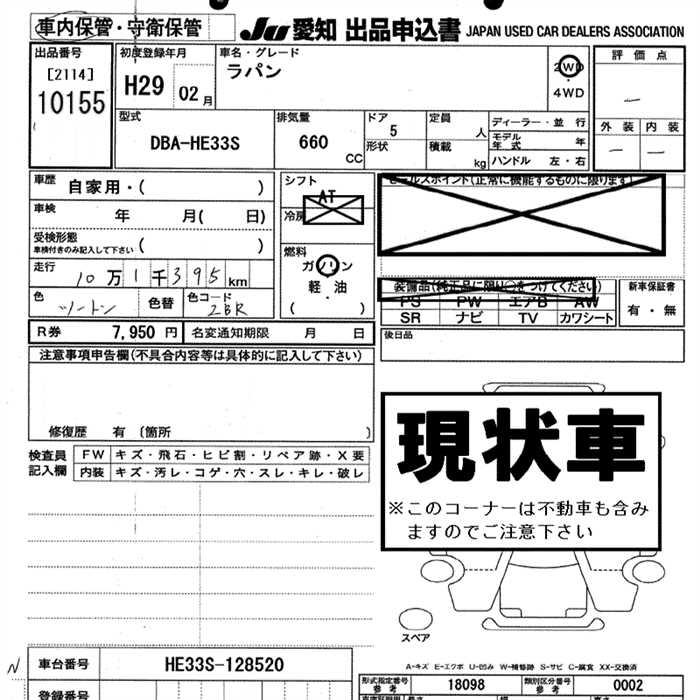 車内保管・守衛保管 JU 愛知 出品申込書 JAPAN USED CAR DEALERS ASSOCIATION
出品番号 初度登録年月 車名・グレード 評価点
[2114] H29 02月 ラパン 2WD
10155 ・4WD
型式 排気量 ドア 定員 ディーラー・並行 外装 内装
DBA-HE33S 660 CC 5 人 モデル年式 年
形状 積載 kg ハンドル 左・右
車歴 自家用・( ) シフト AT セールスポイント(正常に機能するものに限ります)
車検 年 月( 日) 冷房
受検形態 車検付きのみ記入して下さい ( ) 燃料
走行 10万1千395km ガソリン
軽油
( ・ )
装備品(純正品に限り○をつけてください) 新車保証書
PS PW エアB AW 有・無
色 ツートン 色替 色コード 2BR
SR ナビ TV カワシート
R券 7,950円 名変通知期限 月 日 後日品
注意事項申告欄(不具合内容等は具体的に記入して下さい)
現状車
※このコーナーは不動車も含み
ますのでご注意下さい
修復歴 有 〔箇所 〕
検査員 FW キズ・飛石・ヒビ割・リペア跡・X要
記入欄 内装 キズ・汚レ・コゲ・穴・スレ・キレ・破レ
スペア
N 車台番号 HE33S-128520
A-キズ E-エクボ U-凹み W-補修跡 S-サビ C-腐食 XX-交換済
型式指定番号 参考 18098 類別区分番号 参考 0002
登録番号